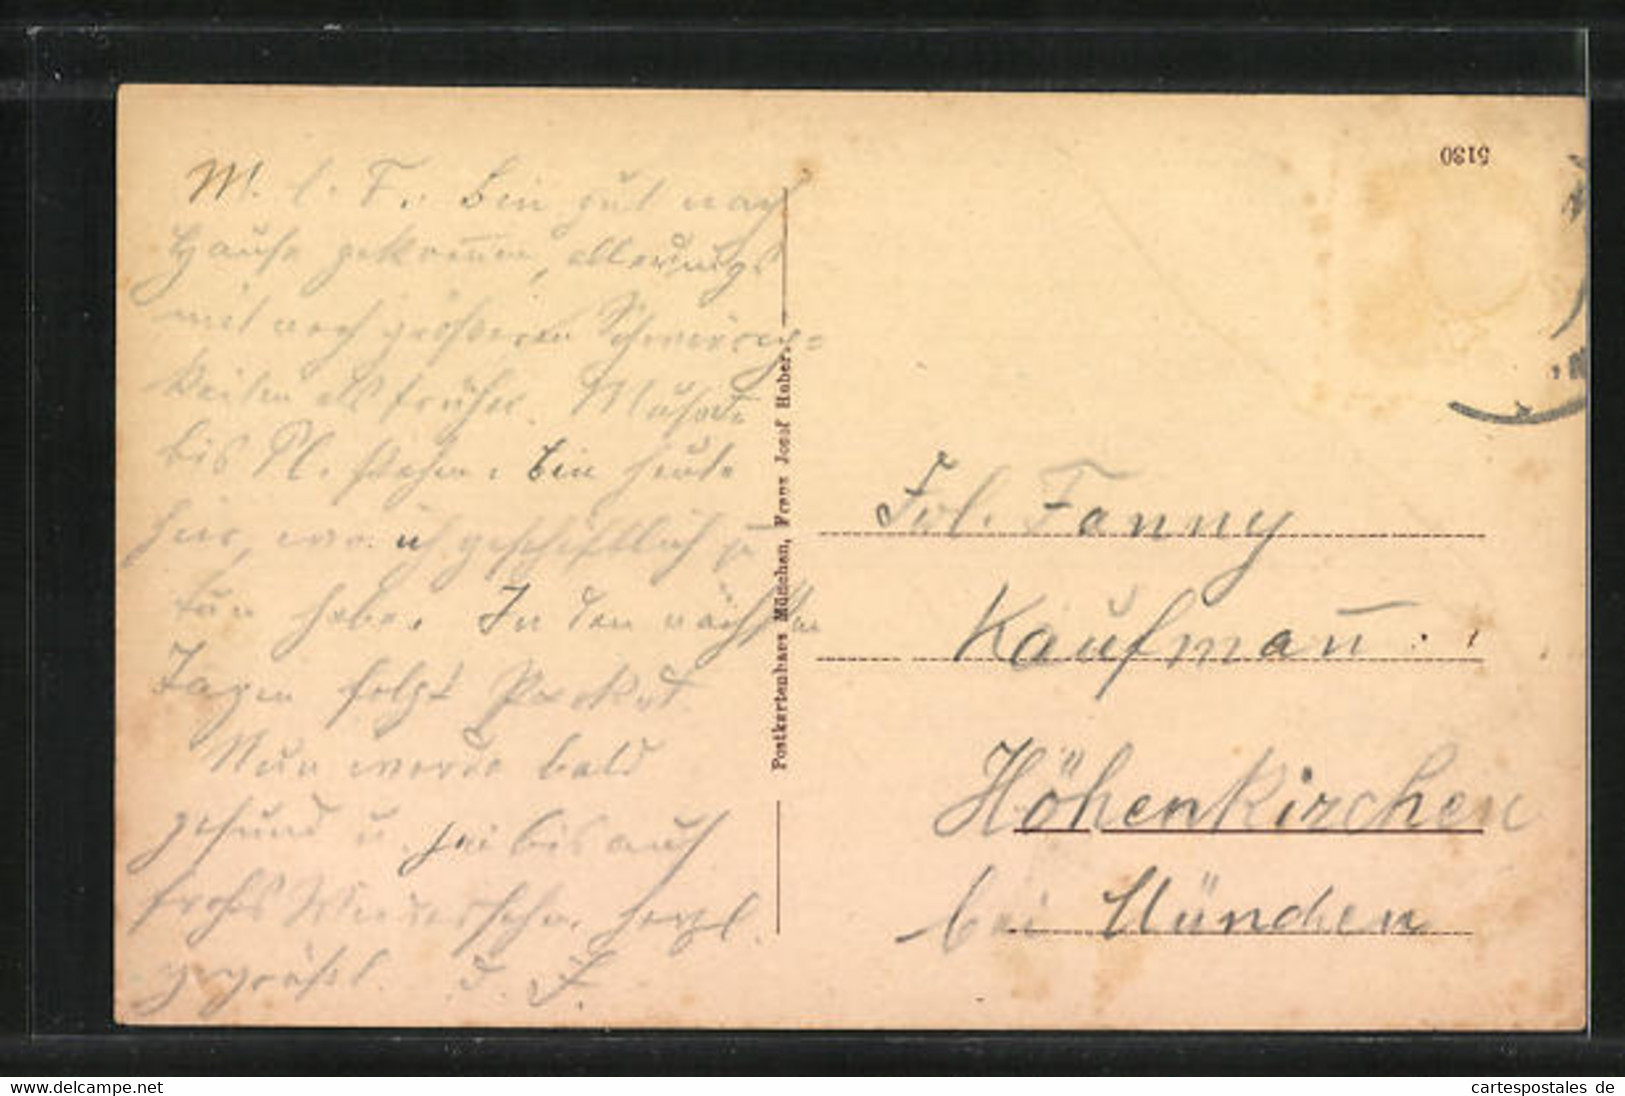 M. l. F. Bin gut nach
Hause gekom̅en, allerdings
mit noch größeren Schwierig=
keiten als früher. Mußte
bis Pl. stehen. Bin heute
hier, wo ich geschäftlich zu
tun habe. In den nächsten
Tagen folgt Packet.
Nun werde bald
gesund u. sei bis auf
frohes Wiedersehn. herzl.
gegrüßt. d. F.
Postkartenhaus München, Franz Josef Huber.
5130
Frl. Fanny
Kaufman̅
Höhenkirchen
bei München
www.delcampe.net
cartespostales de